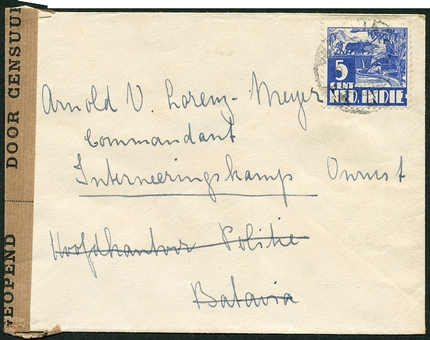 GEOPEND DOOR CENSUUR
5
CENT
NED. INDIE
Arnold V. Lorenz-Meyer
Commandant
Interneeringskamp Onrust
Hoofdkantoor Politie
Batavia